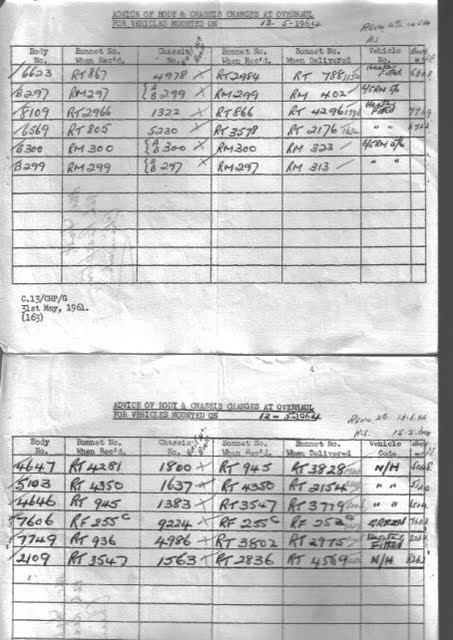 ADVICE OF BODY & CHASSIS CHANGES AT OVERHAUL
FOR VEHICLES MOUNTED ON 13-5-1964
Body No. Bonnet No. When Rec'd. Chassis No. Bonnet No. When Delivered Vehicle No.
6623 RT 867 4978 RT 2984 RT 788 Heater Fitted
B297 RM 297 {A B 299 RM 299 RM 402
8109 RT 2966 1322 RT 866 RT 4296 Heater Fitted
6569 RT 805 5230 RT 3578 RT 2176 " "
B300 RM 300 {A B 300 RM 300 RM 323
B299 RM 299 {A B 297 RM 297 RM 313 " "
C.13/CHP/G
31st May, 1961.
(163)
ADVICE OF BODY & CHASSIS CHANGES AT OVERHAUL
FOR VEHICLES MOUNTED ON 12-5-1964
Body No. Bonnet No. When Rec'd. Chassis No. Bonnet No. When Delivered Vehicle Code
4647 RT 4281 1800 RT 945 RT 3828 N/H
5103 RT 4350 1637 RT 4350 RT 2154 " "
4646 RT 945 1383 RT 3547 RT 3779 " "
7606 RF 255c 9224 RF 255c RF 252c GREEN
7749 RT 936 4986 RT 3802 RT 2975 Heater Fitted
2109 RT 3547 1563 RT 2836 RT 4569 N/H